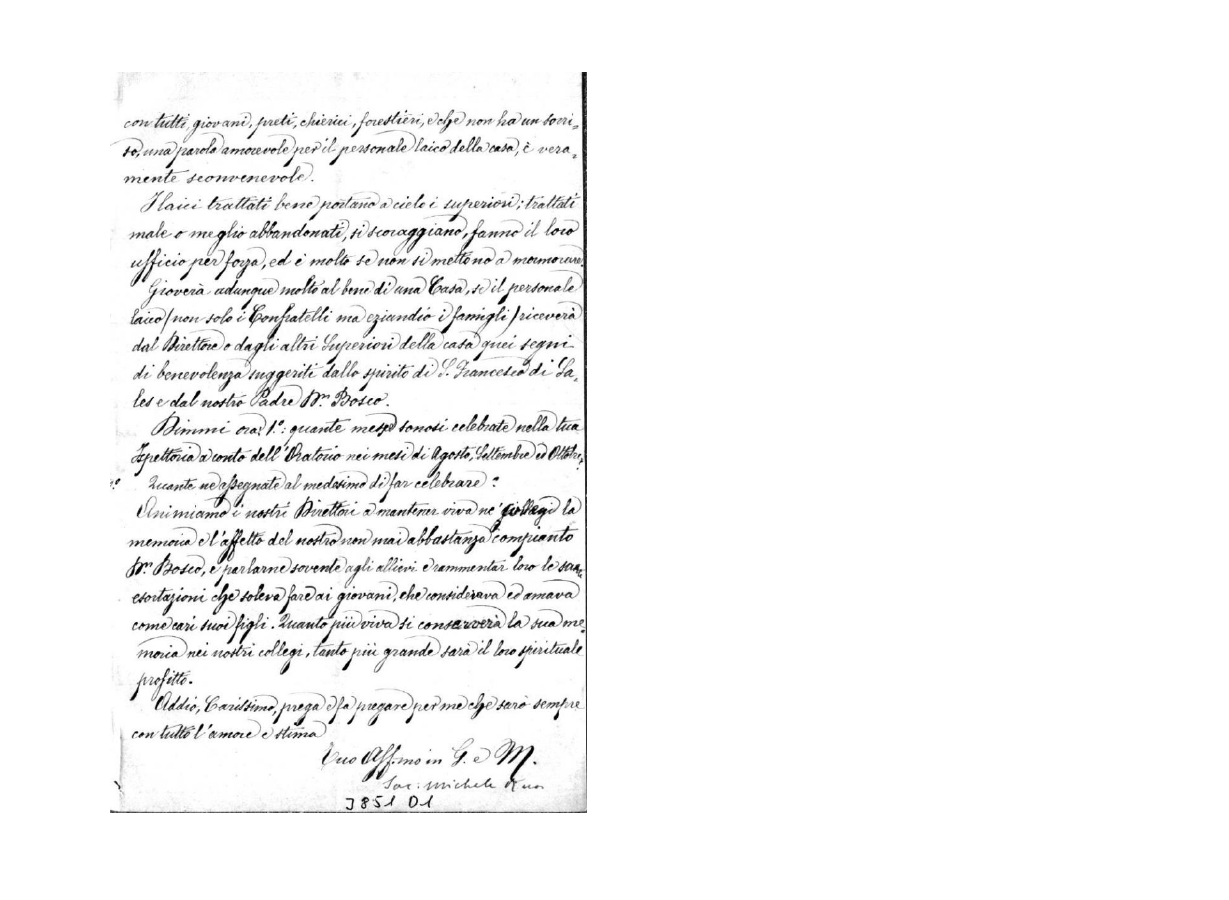 con tutti, giovani, preti, chierici, forestieri, e che non ha un sorri=
so, una parola amorevole per il personale laico della casa, è vera=
mente sconvenevole.
I laici trattati bene portano a cielo i superiori; trattati
male o meglio abbandonati, si scoraggiano, fanno il loro
ufficio per forza, ed è molto se non si mettono a mormorare.
Gioverà adunque molto al bene di una Casa, se il personale
laico (non solo i Confratelli ma eziandio i famigli) riceverà
dal Direttore o dagli altri Superiori della casa quei segni
di benevolenza suggeriti dallo spirito di S. Francesco di Sa=
les e dal nostro Padre Dn Bosco.
Dimmi ora: 1.º: quante messe sonosi celebrate nella tua
Ispettoria a conto dell'Oratorio nei mesi di Agosto, Settembre ed Ottobre?
2º Quante ne assegnate al medesimo di far celebrare?
Animiamo i nostri Direttori a mantener viva ne' collegi la
memoria e l'affetto del nostro non mai abbastanza compianto
Dn Bosco, e parlarne sovente agli allievi e rammentar loro le sante
esortazioni che soleva fare ai giovani, che considerava ed amava
come cari suoi figli. Quanto più viva si conserverà la sua me=
moria nei nostri collegi, tanto più grande sarà il loro spirituale
profitto.
Addio, Carissimo, prega e fa pregare per me che sarò sempre
con tutto l'amore e stima
Tuo Aff.mo in G. e M.
Sac: Michele Rua
3851 D1